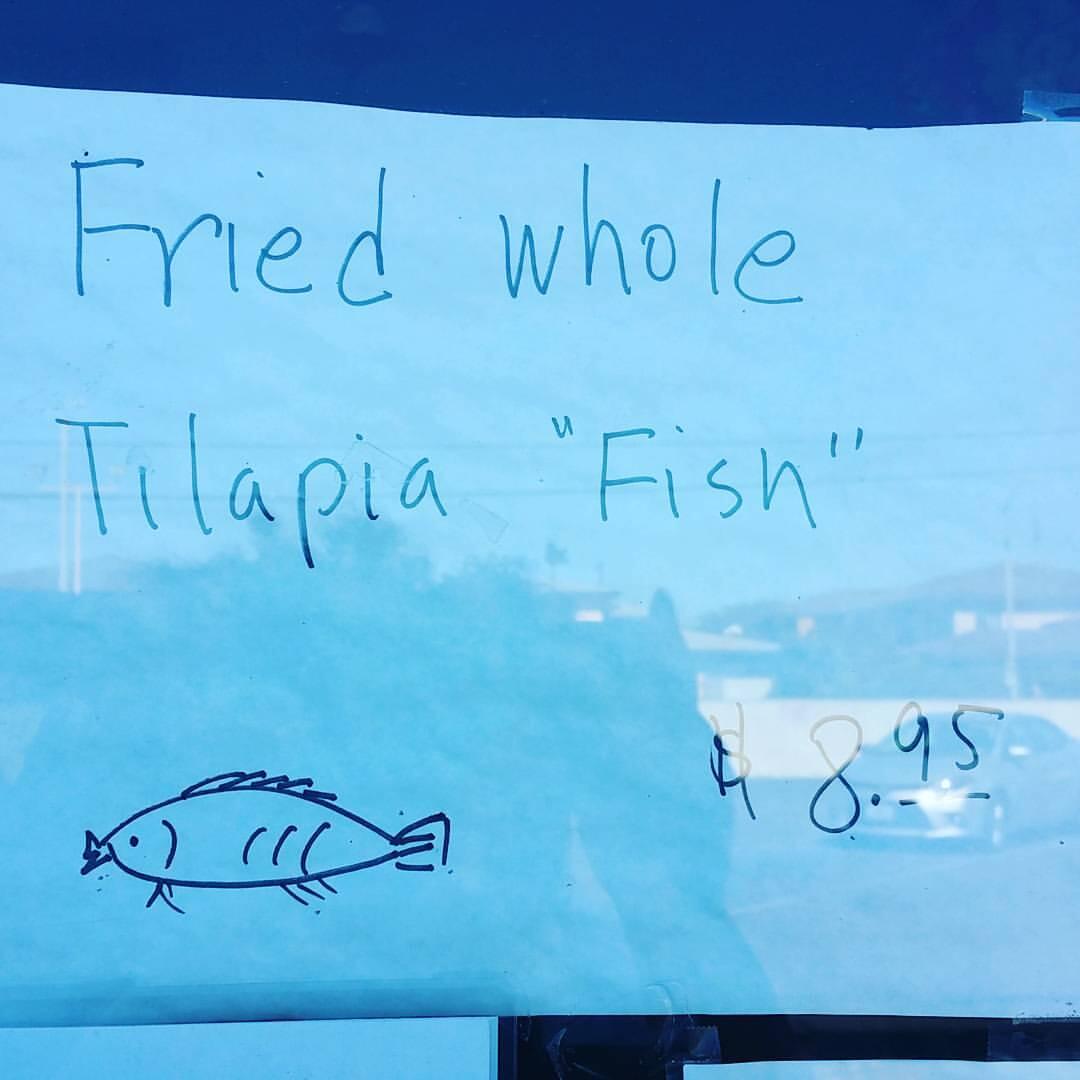 Fried whole
Tilapia "Fish"
$ 8.95